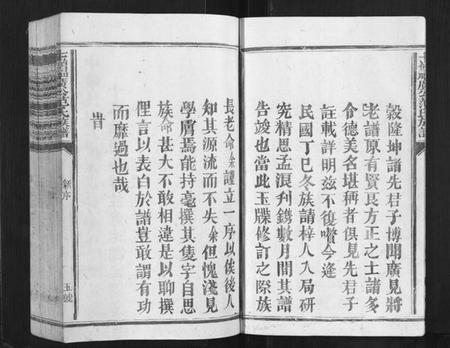 穀隆坤諸先君子博聞廣見將
老譜原有賢良方正之士諸多
令德美名堪稱者俱見先君子
註載詳明茲不復嚐今逢
民國丁巳冬族請梓人入局研
究精思孟浪刋鐫數月間其譜
告竣也當此玉牒修訂之際族
長老命余謹立一序以俟後人
知其源流而不失余但愧淺見
學膚焉能持毫撰其隻字自思
族命甚大不敢相違是以聊撰
俚言以表白於譜豈敢謂有功
而靡過也哉
旹
新序